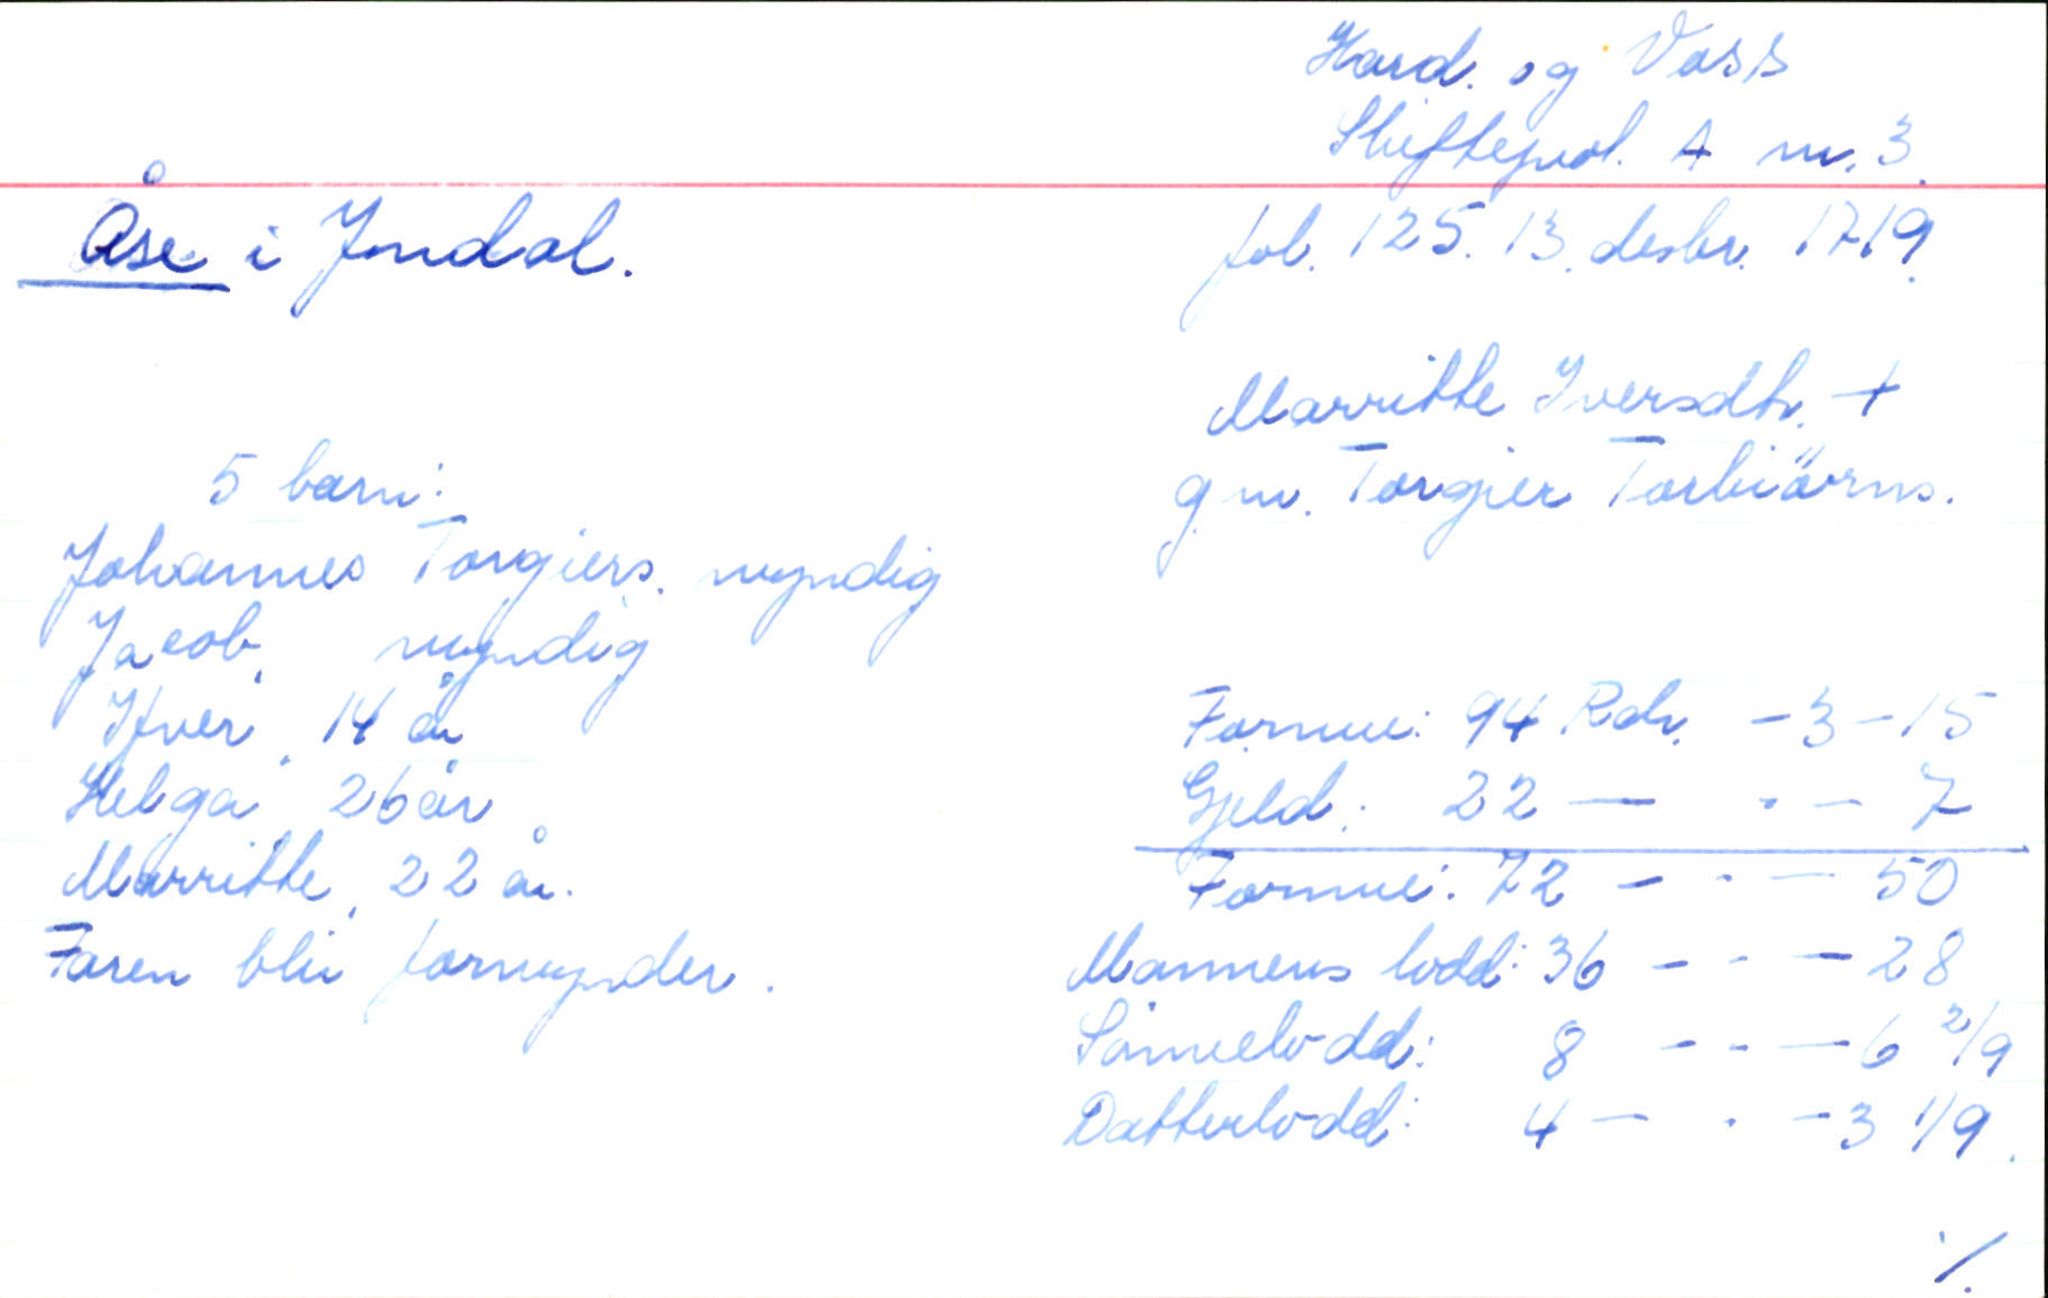 Hard. og Voss
Skifteprot. A nr. 3.
Åse i Jondal.
fol. 125. 13. desbr. 1719.
Marritte Iversdtr. +
g.m. Torgier Torbiörns.
5 barn:
Johannes Torgiers. myndig
Jacob, myndig
Ifver, 14 år
Helga 26 år
Marritte, 22 år.
Faren blir formynder.
Formue: 94 Rdr. - 3 - 15
Gjeld: 22 — · — 7
Formue: 72 — · — 50
Mannens lodd: 36 - - — 28
Sønnelodd: 8 - - — 6 2/9
Datterlodd: 4 — · — 3 1/9.
./.